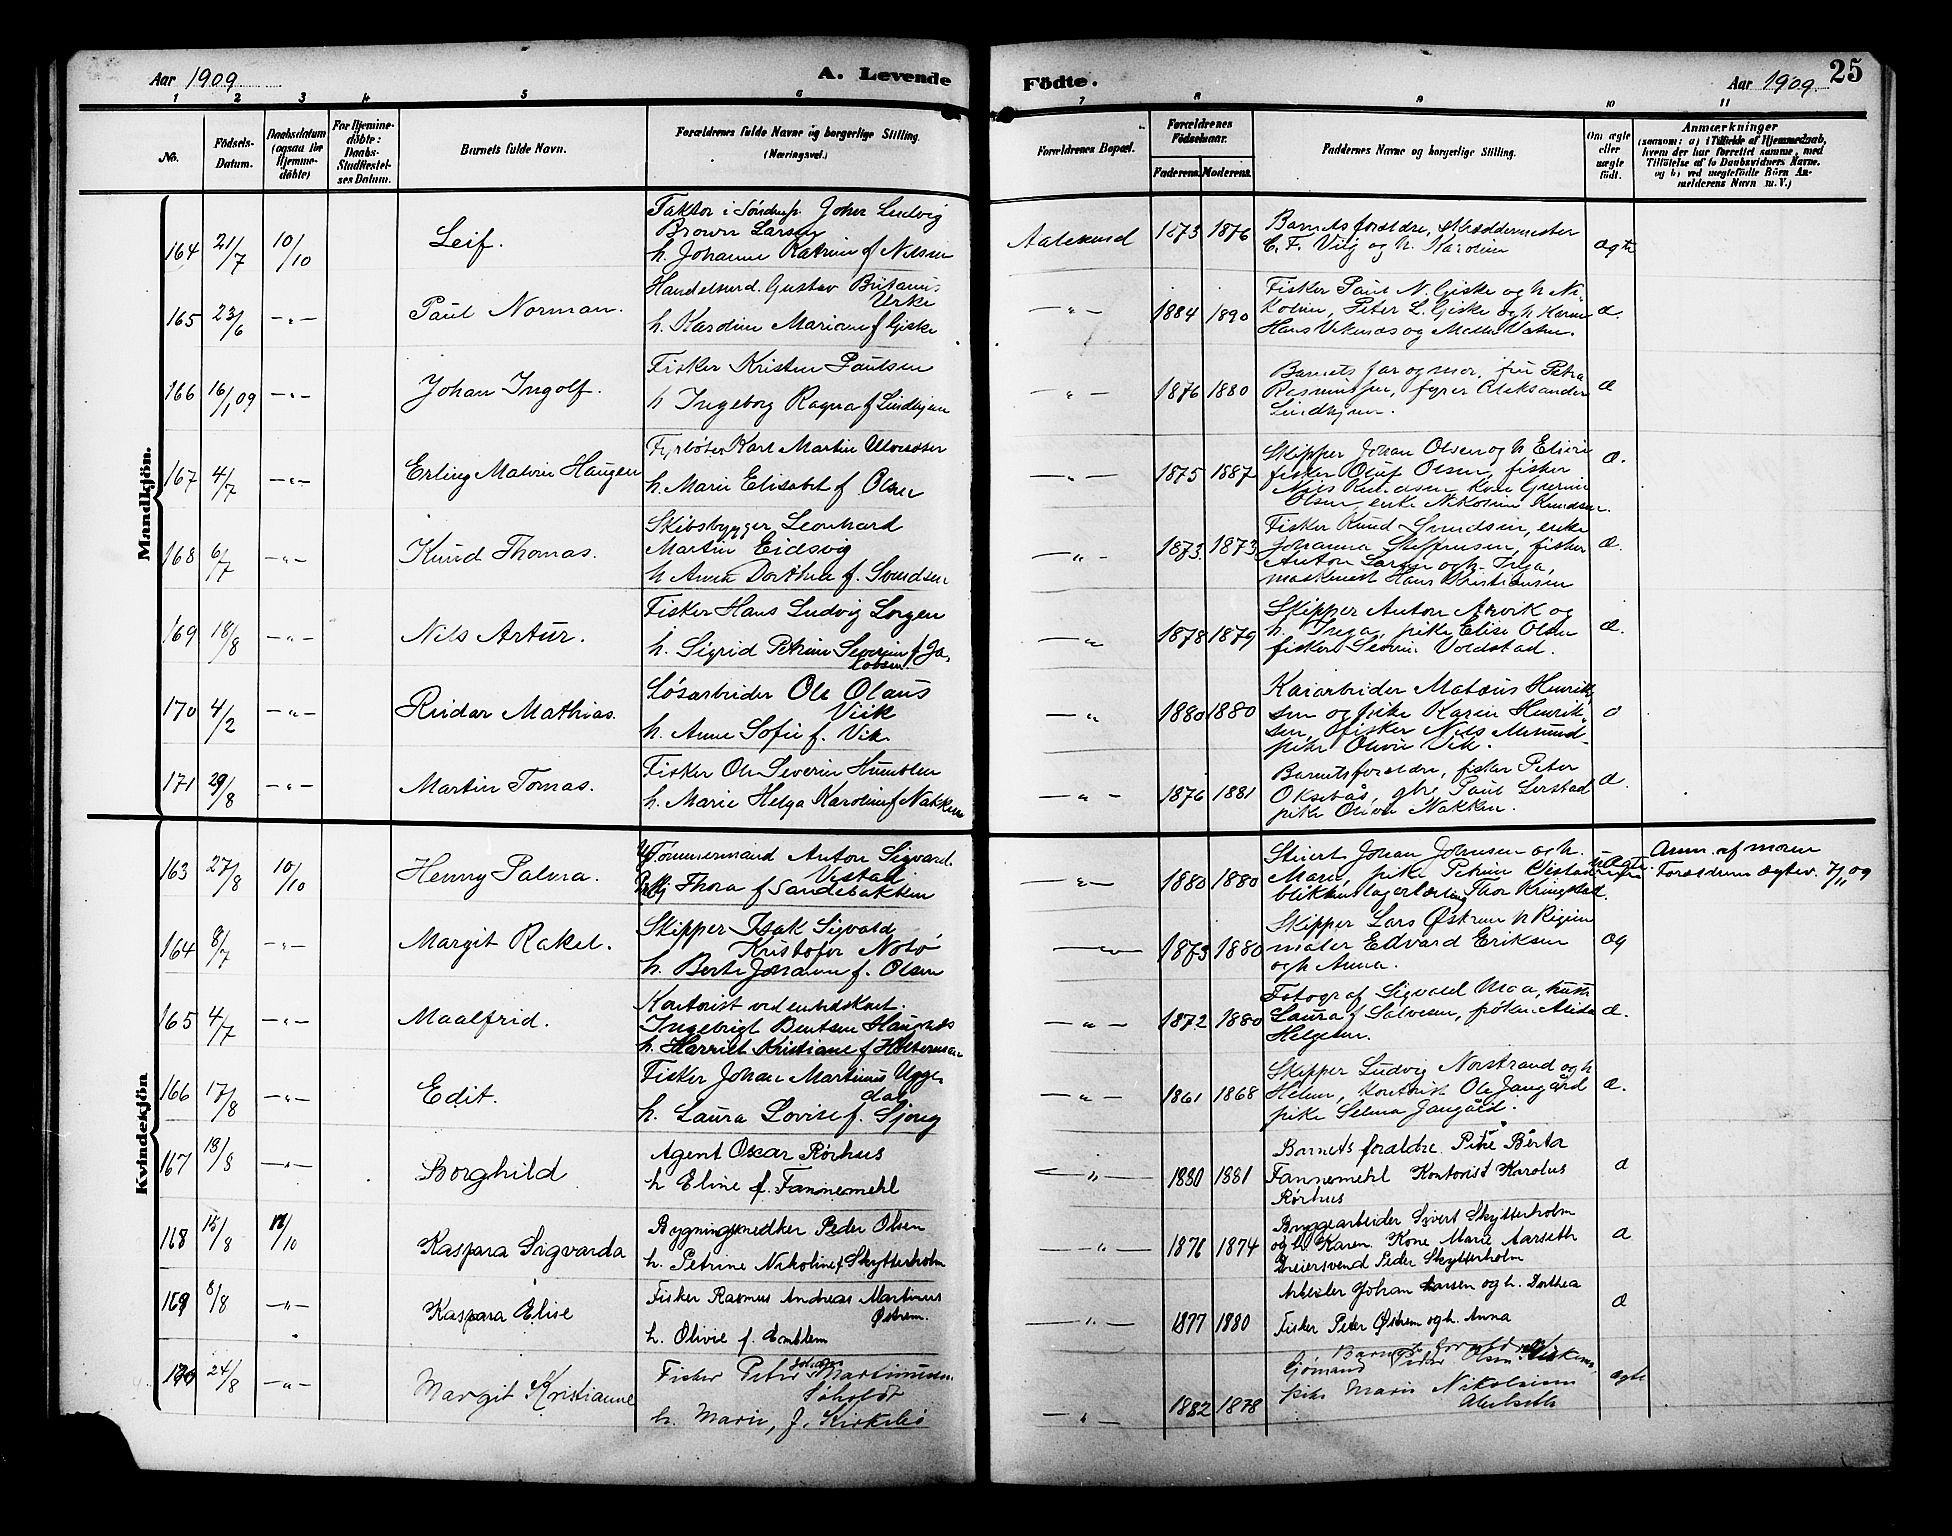 Aar 1909
A. Levende
Födte.
Aar 1909.
25
1 2 3 4 5 6 7 8 9 10 11
No.
Födsels-Datum.
Daabsdatum (ogsaa for Hjemme-döbte)
For Hjemme-döbte: Daabs-Stadfæstel-ses Datum.
Barnets fulde Navn.
Forældrenes fulde Navne og borgerlige Stilling. (Næringsvei.)
Forældrenes Bopæl.
Forældrenes Födselsaar.
Faderens. Moderens.
Faddernes Navne og borgerlige Stilling.
Om ægte eller uægte födt.
Anmærkninger
(saasom: a) i Tilfælde af Hjemmedaab, hvem der har forrettet samme, med Tilföielse af to Daabsvidners Navne. og b) ved uægtefödte Börn An-melderens Navn m. V.)
Mandkjön.
164 21/7 10/10 Leif.
Faktor i Søndmp. Joher Ludvig
Brown Larsen
h. Johanne Katrine f Nilsen
Aalesund 1873 1876
Barnets forældre, Skræddermester
C. F. Vilg og h. Karoline
ægte
165 23/6 -"- Paul Norman.
Handelsmd. Gustav Britanus
Urke
h. Karoline Mariane f Giske
-"- 1884 1890
Fisker Paul N. Giske og h Ni-
koline, Peter L. Giske og h Karen
Hans Urkenæs og Mathe Vatne.
æ.
166 16/1 09 -"- Johan Ingolf.
Fisker Kristen Paulsen
h Ingeborg Ragna f Lindhjem
-"- 1876 1880
Barnets far og mor, fru Petra
Rasmussen, fyrb Aleksander
Lindhjem.
æ
167 4/7 -"- Erling Malvin Haugen
Fyrbøter Karl Martin Ulvesæter
h. Marie Elisabet f Olsen
-"- 1875 1887
Skipper Johan Olsen og h Elisen
fisker Oluf Olsen, fisker
Nils Knudsen kone
Olsen, enke Nikoline Knudsen.
æ.
168 6/7 -"- Knud Thomas.
Skibsbygger Leonhard
Martin Eidsvig
h Anna Dorthea f. Svendsen
-"- 1873. 1873
Fisker Knud Svendsen, enke
Johanna Steffensen, fisker
Anton Larsen og h. Inga,
maskinist Hans Kristiansen
æ.
169 18/8 -"- Nils Artur.
Fisker Hans Ludvig Sorgen
h. Sigrid Petrine Severin f Ja-
kobsen.
-"- 1878 1879
Skipper Anton Arvik og
h. Inga, pike Elise Olsen
fisker Severin Voldstad.
æ.
170 4/2 -"- Reidar Mathias.
Løsarbeider Ole Olaus
Viik
h. Anne Sofie f. Vik.
-"- 1880 1880
Kaiarbeider Matæus Henrik-
sen og pike Karen Henrik-
sen, fisker Nils Aursund
pike Olivie Vik.
æ
171 29/8 -"- Martin Tomas.
Fisker Ole Severin Humblen
h. Marie Helga Karoline f Nakken
-"- 1876 1881
Barnets forældre, fisker Peter
Oksebås, gbr Paul Lerstad
pike Olivie Nakken.
æ.
Kvindekjön
163 27/8 10/10 Henny Palma.
Ug Tømmermand Anton Sigvard.
Vestad
Pike Thora f Sandebakken
-"- 1880 1880
Stuert Johan Johnsen og h.
Marie, pike Petrine Vestad
blikkenslagerlærling Thor Kringstad.
uægte
Anm. af moren
Forældrene ægtev. 7/11 09
164 8/7 -"- Margit Rakel.
Skipper Isak Sigvald
Kristofer Nolø
h. Berte Johanne f. Olsen
-"- 1873 1880
Skipper Lars Østrem h Regine
maler Edvard Eriksen
og h Anna.
æg
165 4/7 -"- Maalfrid.
Kontorist ved enbedskont.
Ingebrigt Bentsen Haugnæs
h. Harriet Kristiane f Holterman
-"- 1872 1880
Fotograf Sigvald Moa, hust.
Laura f Salvesen, frøken Alida
Helgesen.
æ.
166 17/8 -"- Edit.
Fisker Johan Martinus Ugge-
dal
h. Laura Lovise f. Sjong
-"- 1861 1868
Skipper Ludvig Norstrand og h
Helene, kontorist Ole Jangård
pike Selma Jangård.
æ.
167 18/8 -"- Borghild
Agent Oscar Rørhus
h Eline f. Fannemehl
-"- 1880 1881
Barnets forældre Pike Berta
Fannemehl Kontorist Karolus
Rørhus
æ
168 15/8 17/10 Kaspara Sigvarda
Bygningssnedker Peder Olsen
h. Petrine Nikoline f Skytterholm
-"- 1876 1874
Bryggearbeider Sivert Skytterholm
og h. Karen Kone Marie Aarseth
Dreiersvend Peder Skytterholm
æ
169 8/8 -"- Kaspara Elise
Fisker Rasmus Andreas Martinus
Østrem.
h. Olivie f. Emblem
-"- 1877 1880
Arbeider Johan Larsen og h. Dorthea
Fisker Peter Østrem og h. Anna
æ
170 24/8 -"- Margit Kristianne
Fisker Peter Johan Martinusen
Søholdt
h. Marie, f. Kirkebø
-"- 1882 1878
Barnets forældre
Sjømand Peder Olsen
pike Marie Nikolsine
Aleksseth
ægte